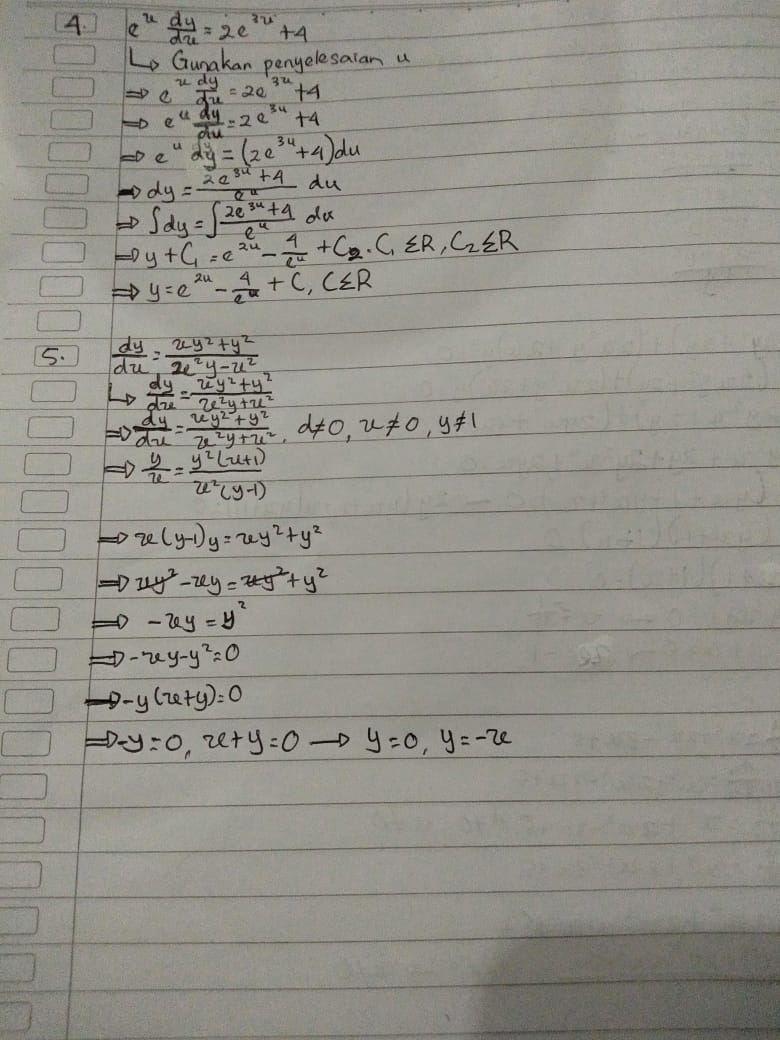 4. e^x dy/dx = 2e^3x + 4
↳ Gunakan penyelesaian u
⇒ e^x dy/dx = 2e^3u + 4
⇒ e^u dy/du = 2e^3u + 4
⇒ e^u dy = (2e^3u + 4)du
⇒ dy = 2e^3u + 4 / e^u du
⇒ ∫dy = ∫ 2e^3u + 4 / e^u du
⇒ y + C₁ = e^2u - 4/e^u + C₂. C₁ ΣR, C₂ ΣR
⇒ y = e^2u - 4/e^u + C, CΣR
5. dy/dx = xy² + y² / x²y - x²
↳ dy/dx = xy² + y² / x²y + x²
⇒ dy/dx = xy² + y² / x²y + x², d≠0, x≠0, y≠1
⇒ y/x = y²(x+1) / x²(y-1)
⇒ x(y-1)y = xy² + y²
⇒ xy² - xy = xy² + y²
⇒ -xy = y²
⇒ -xy - y² = 0
⇒ -y(x+y) = 0
⇒ -y = 0, x+y = 0 → y = 0, y = -x